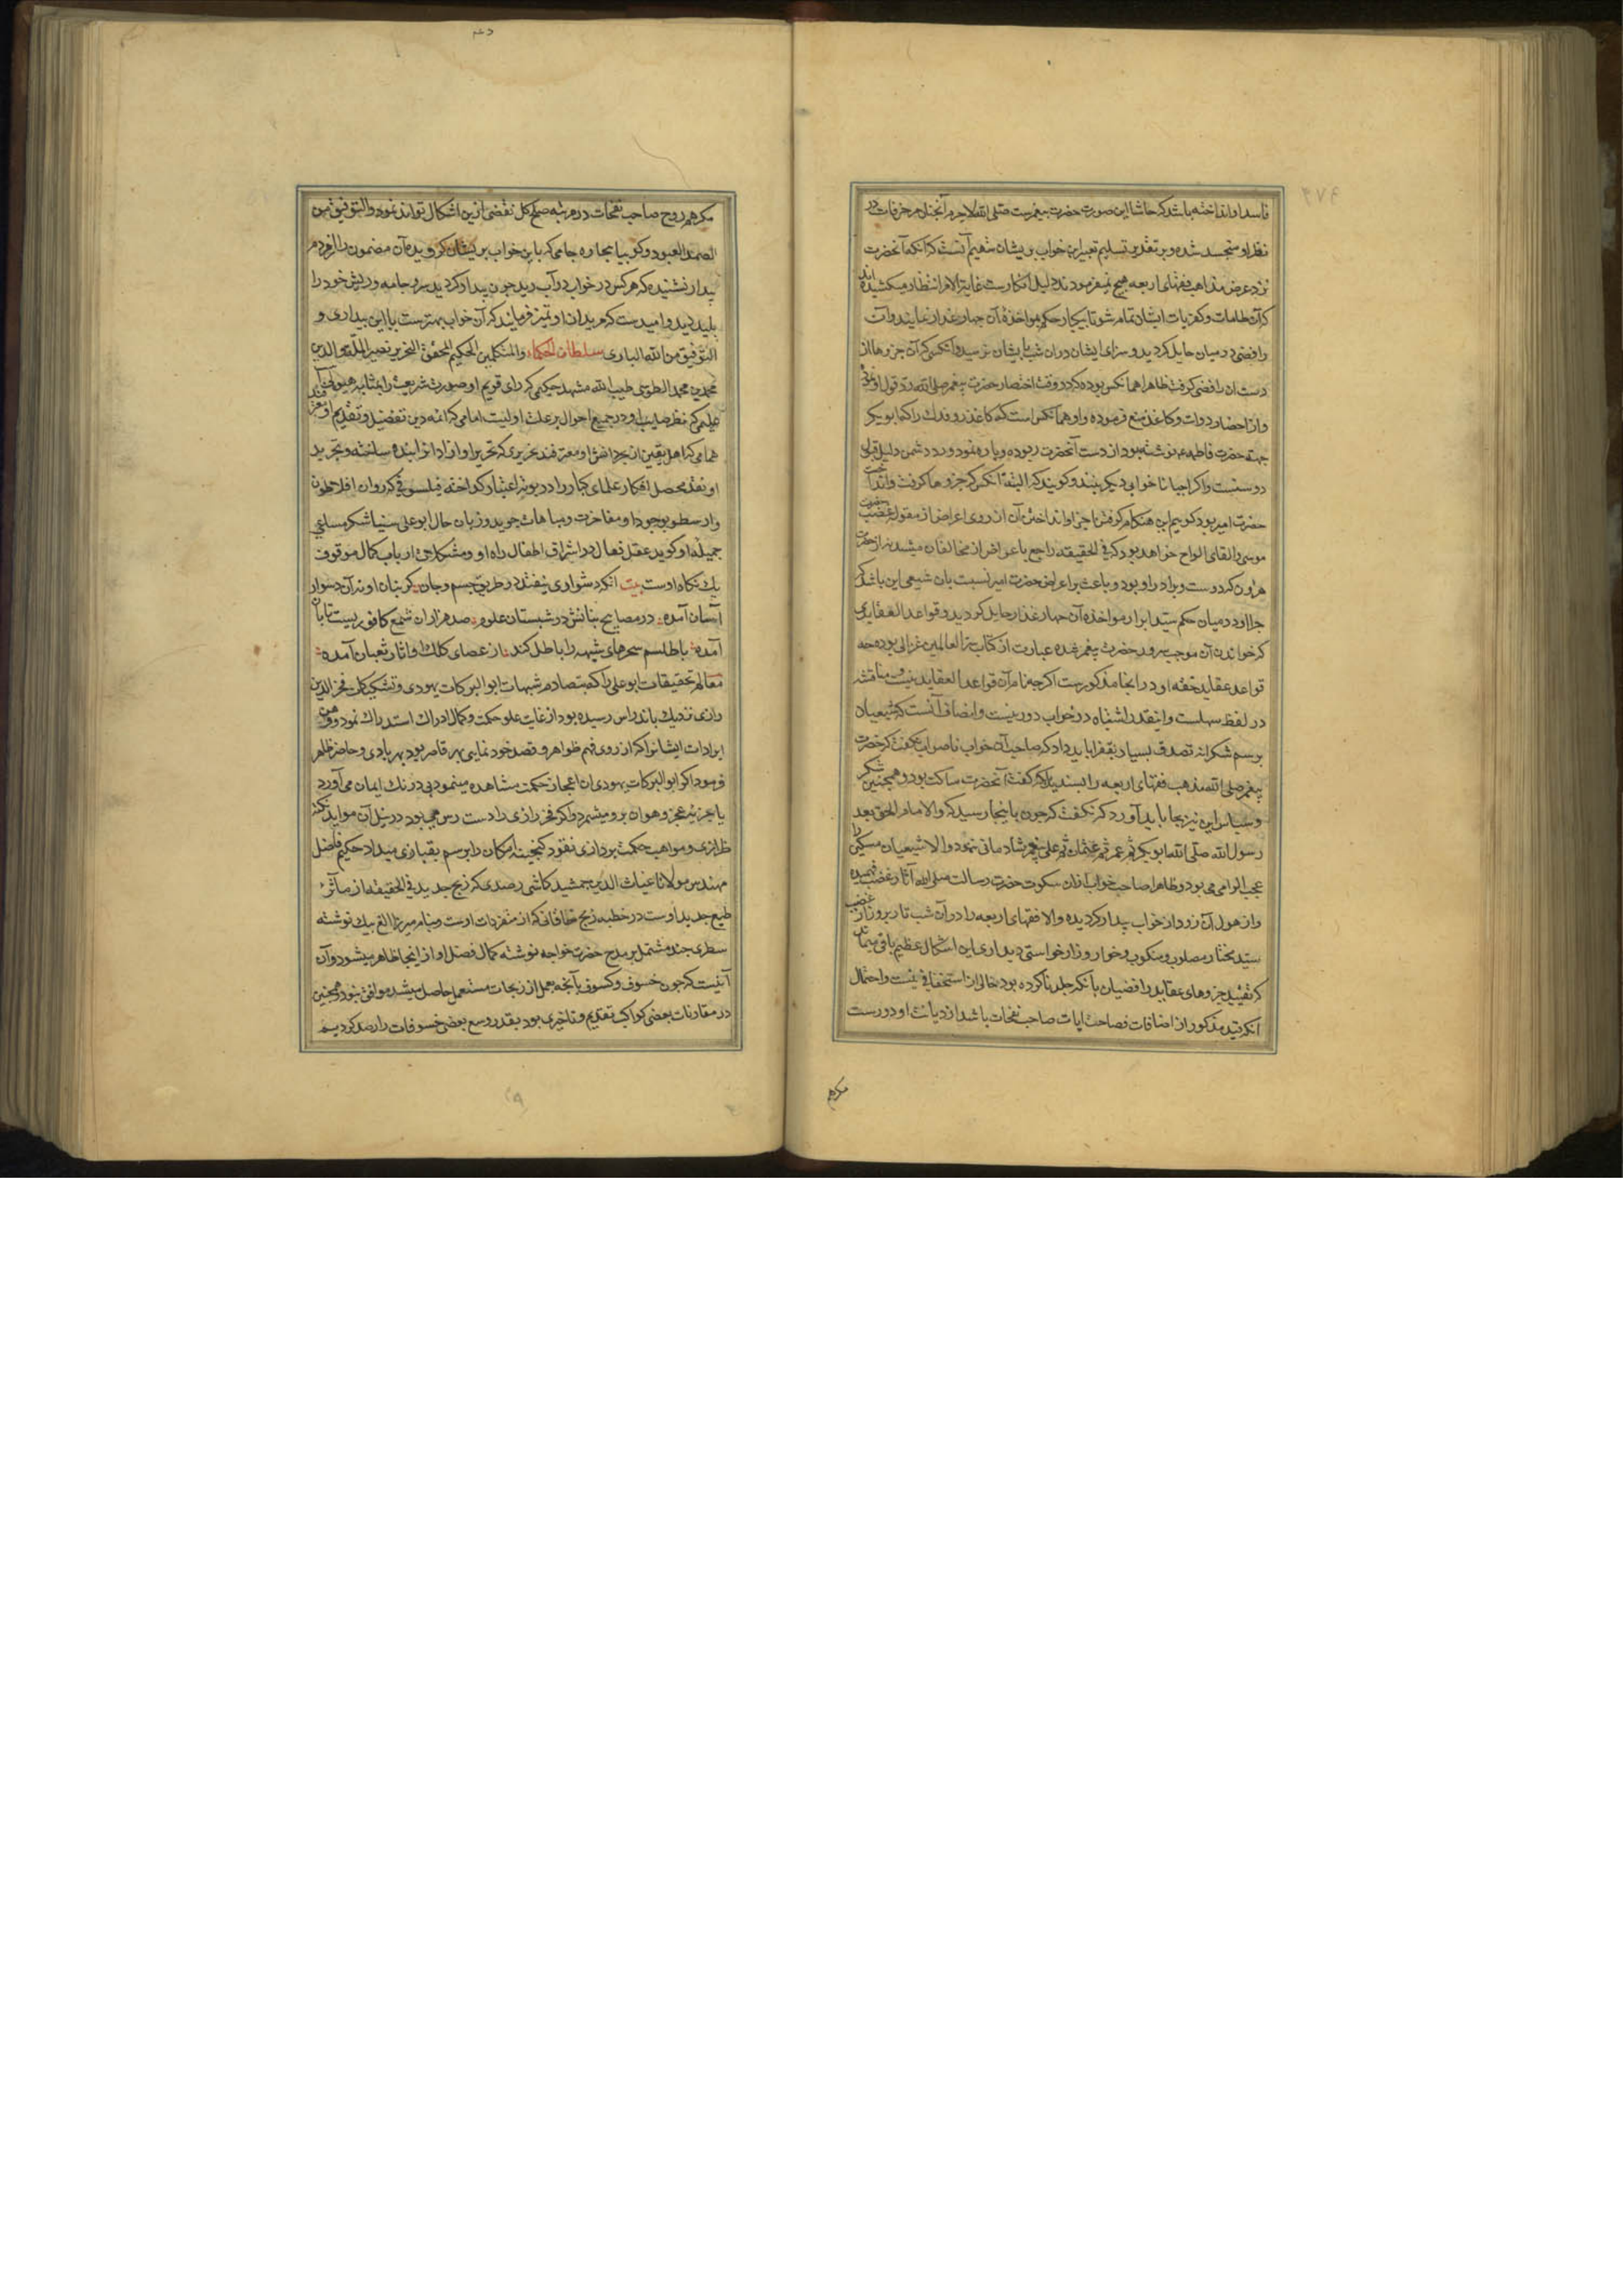 فاسد او انداخته باشد که حاشا این صورت حضرت پیغمبرست صلی الله لاجرم آنچنان مزخرفات در
نظر او متجسد شده و بر تقدیر تسلیم تعبیر این خواب پریشان شعیم آنست که آنکه آنحضرت
نزد عرض مذاهب فقهای اربعه هیچ نمیفرمودند دلیل انکارست غایة الامر انتظار میکشیده اند
که آن طامات و کفریات ایشان تمام شود تا بیکبار حکم بمواخذه آن چهار غدار نمایند و آن
رافضی در میان حایل گردید و سزای ایشان در آن شب بایشان نرسید و آنکس که آن جزوها از
دست آن رافضی گرفت ظاهرا همانکس بوده که در وقت احتضار حضرت پیغمبر صلی الله رد قول او نمود
و از احضار دوات و کاغذ منع فرموده و او همانکس است که کاغذ رد فدک را که ابوبکر
جهة حضرت فاطمه نوشته بود از دست آنحضرت ربوده و پاره نمود و رد دشمن دلیل قبول
دوستست و اگر احیانا خوابی دیگر بینند و گویند که البته آنکس که جزوها گرفت و انداخت
حضرت امیر بود گوییم این هنگام گرفتن اجزا و انداختن آن از روی اعراض از مقوله غضب حضرت
موسی و القای الواح خواهد بود که فی الحقیقه راجع باعراض از مخالفان میشد نه از حضرت
هرون که دوست و برادر او بود و باعث بر اعراض حضرت امیر نسبت بان شیعی این باشد که
چرا او در میان حکم سید ابرار مواخذه آن چهار غدار حایل گردید و قواعد العقایدی
که خواندن آن موجب سرور حضرت پیغمبر شده عبارت از کتاب سر العالمین غزالی بوده چه
قواعد عقاید حقه او در آنجا مذکورست اگرچه نام آن قواعد العقاید نیست و مناقشه
در لفظ سهلست و اینقدر اشتباه در خواب دور نیست و انصاف آنست که شیعیان
برسم شکرانه تصدق بسیار بفقرا باید داد که صاحب آن خواب ناصواب نگفت که حضرت
پیغمبر صلی الله مذهب فقهای اربعه را پسندید بلکه گفت آنحضرت ساکت بود و همچنین شکر
و سپاس این نیز بجا باید آورد که نگفت که چون باینجا رسید که والامام الحق بعد
رسول الله صلی الله ابوبکر ثم عمر ثم عثمان ثم علی پیغمبر شادمانی نمود والا شیعیان مسکین را
عجب الزامی می بود و ظاهرا صاحب خواب از آن سکوت حضرت رسالت صلی الله آثار غضب فهمیده
و از هول آن زود از خواب بیدار گردیده والا فقهای اربعه را در آن شب تار بروزار غضب
سید مختار مصلوب و منکوب و خوار و زار خواستی دید آری این اشکال عظیم باقی میماند
که تقیید جزوهای عقاید رافضیان بآنکه جلد ناکرده بود خالی از استخفافی نیست و احتمال
آنکه قید مذکور از اضافات فصاحت ایات صاحب نفحات باشد از دیانت او دورست
مکرهم
مکر هم روح صاحب نفحات در مرتبه صلح کل تفضی ازین اشکال تواند نمود والتوفیق من
الصمد المعبود و گوییا بیچاره جامی که باین خواب پریشان گرویده آن مضمون را از مردم
بیدار نشنیده که هر کس در خواب در آب رید چون بیدار گردید سر و جامه و ریش خود را
پلید دید و امیدست که مریدان او نیز فرمایند که آن خواب بهترست یا این بیداری و
التوفیق من الله الباری سلطان الحکماء والمتکلمین الحکیم المحقق النحریر نصیر الملة والدین
محمد بن محمد الطوسی طیب الله مشهده حکیمی که رای قویم او صورت شریعت را بمثابه هیولی آمد
علیمی که نظر صایب او در جمیع احوال بر علت اولیست امامی که ائمه دین تفضیل و تقدیم او معترفند
همامی که اهل یقین از بحر دانش او مغترفند تحریری که تحریر او آزادان را بنده ساخته و تجرید
او نقد محصل افکار علمای کبار را در بوته اعتبار گداخته فیلسوفی که روان افلاطون
و ارسطو بوجود او مفاخرت و مباهات جوید و زبان حال ابوعلی سینا شکر مساعی
جمیله او گوید عقل فعال در اشراق اطفال راه او و مشکلات ارباب کمال موقوف
یک نگاه اوست بیت آنکه دشواری نیفتد در طریق جسم و جان کز بنان او نه آن دشوار
آسان آمده در مصابیح بنانش در شبستان علوم صد هزاران شمع کافوریست تابان
آمده با طلسم سحرهای شبهه را باطل کند از عصای کلک او آثار ثعبان آمده
معالم تحقیقات ابوعلی را که بتصادم شبهات ابوالبرکات یهودی و تشکیکات فخر الدین
رازی نزدیک باندراس رسیده بود از غایت علو حکمت و کمال ادراک استدراک نمود و وهن
ایرادات ایشانرا که از روی فهم ظواهر و قصد خودنمایی بهر قاصر بود بهر بادی و حاضر ظاهر
فرمود اگر ابوالبرکات یهودی آن اعجاز حکمت مشاهده مینمود بی درنک ایمان می آورد
یا جزیه عجز و هوان برو میشمرد و اگر فخر رازی را دست رس می بود در نیل آن مواید نکته
طرازی و مواهب حکمت پردازی نقود گنجینه امکان را برسم بقباری میداد حکیم فاضل
مهندس مولانا غیاث الدین جمشید کاشی رصدی که زیج جدید فی الحقیقه از مآثر
طبع جدید اوست در خطبه زیج خاقانی که از منفردات اوست و بنام میرزا الغ بیک نوشته
سطری چند مشتمل بر مدح حضرت خواجه نوشته کمال فضل او از اینجا ظاهر میشود و آن
آنیست که چون خسوف و کسوف بآنچه بعمل از زیجات مستعمل حاصل میشد موافق نبود و همچنین
در مقارنات بعضی کواکب تقدیم و تاخیری بود بقدر وسع بعضی خسوفات را رصد کردیم